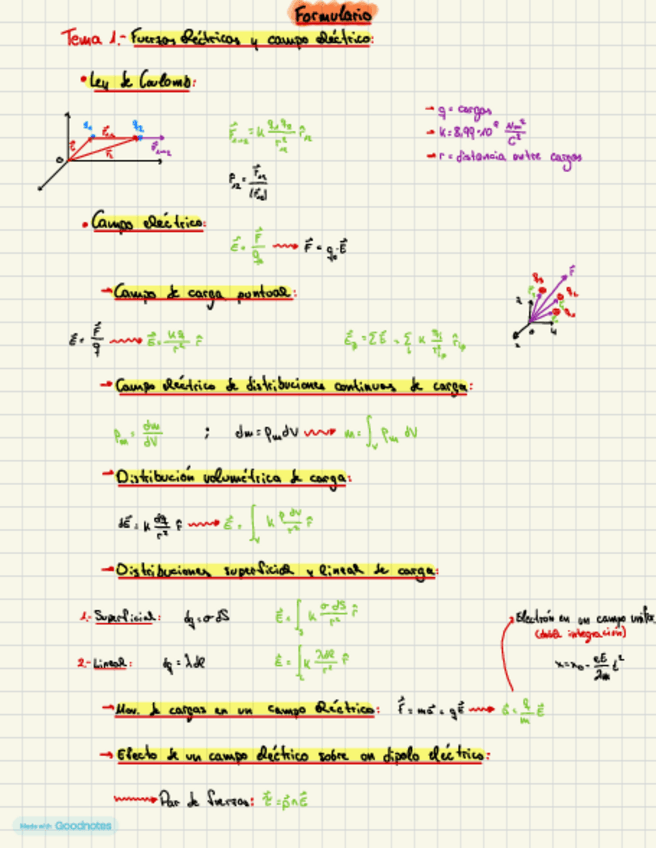 Formulario
Tema 1.- Fuerzas eléctricas y campo eléctrico:
• Ley de Coulomb:
q₁ q₂
r₁₂
r₁ r₂ F₁→₂
0
F⃗₁→₂ = k q₁q₂/r²₁₂ r̂₁₂
→ q = cargas
→ k = 8,99·10⁹ Nm²/C²
→ r = distancia entre cargas
r̂₁₂ = r⃗₁₂/|r⃗₁₂|
• Campo eléctrico:
E⃗ = F⃗/q₀ → F⃗ = q₀·E⃗
→ Campo de carga puntual:
E⃗ = F⃗/q → E⃗ = kq/r² r̂
E⃗p = ΣE⃗ = Σ k qᵢ/r²ᵢp r̂ᵢp
→ Campo eléctrico de distribuciones continuas de carga:
ρm = dm/dV ; dm = ρm dV → m = ∫v ρm dV
→ Distribución volumétrica de carga:
dE⃗ = k dq/r² r̂ → E⃗ = ∫v k ρ dV/r² r̂
→ Distribuciones superficial y lineal de carga:
1.- Superficial: dq = σ dS E⃗ = ∫s k σ dS/r² r̂
2.- Lineal: dq = λ dl E⃗ = ∫L k λ dl/r² r̂
→ Electrón en un campo
(doble integración)
x = x₀ - eE/2m t²
→ Mov. de cargas en un campo eléctrico: F⃗ = ma⃗ = qE⃗ → a⃗ = q/m E⃗
→ Efecto de un campo eléctrico sobre un dipolo eléctrico:
→ Par de fuerzas: τ⃗ = p⃗∧E⃗
Made with Goodnotes